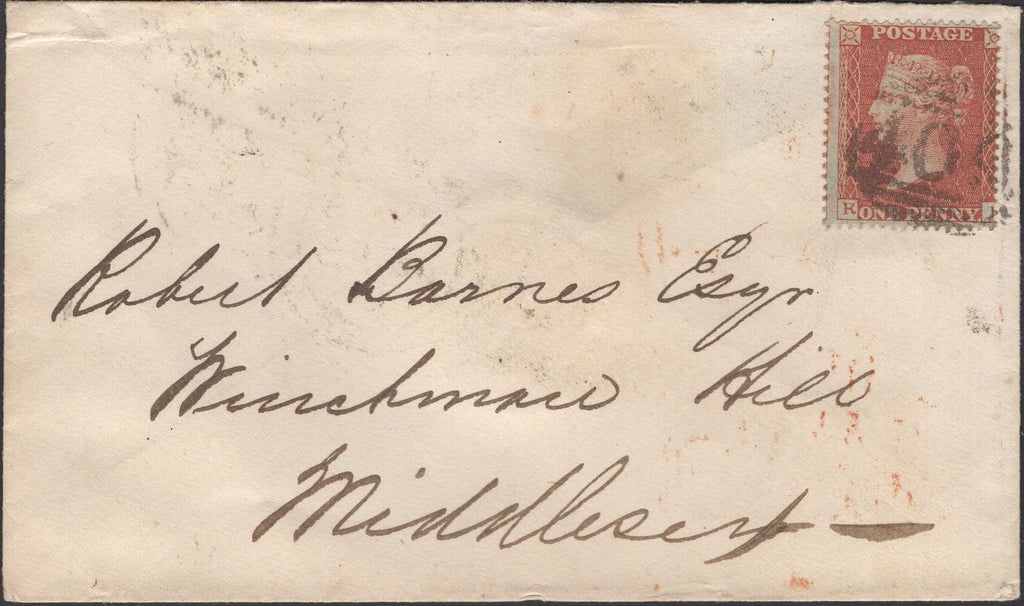 POSTAGE
R ONE PENNY
Robert Barnes Esqr
Winchmore Hill
Middlesex